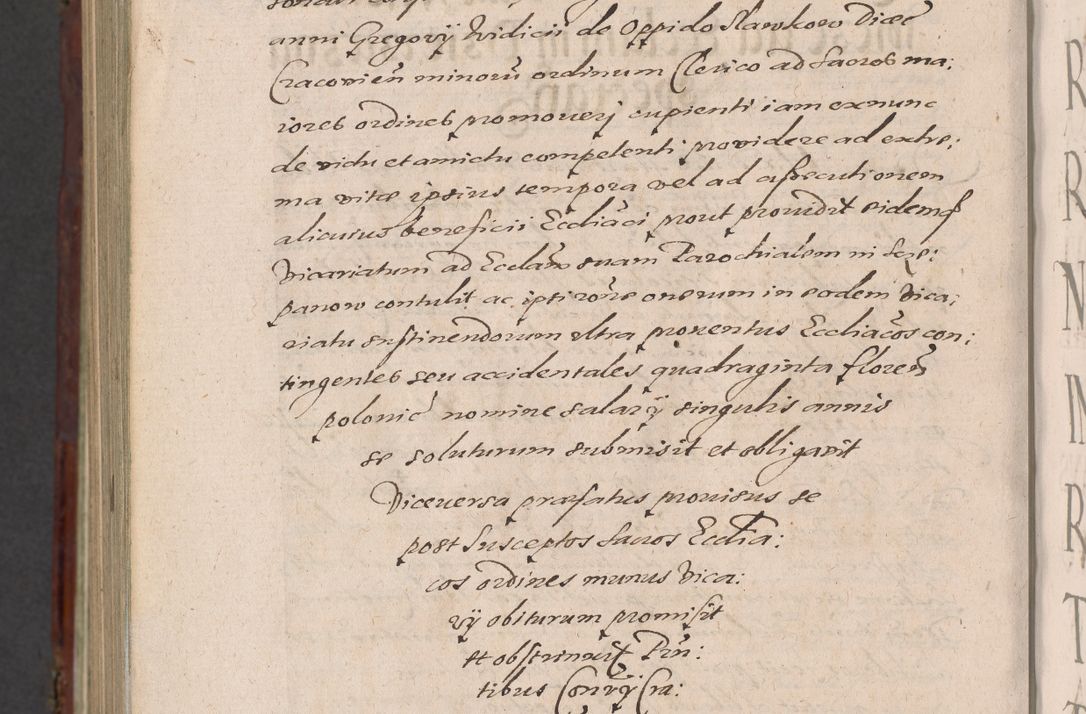 anni Gregorÿ Indicii de Oppido Slawkow Diœc
Cracovien̄ minorū ordinum Clerico ad Sacros ma:
iores ordines promoveri cupienti iam ex nunc
de victu et amictu competenti providere ad extre:
ma vitæ ipsius tempora vel ad assecutionem
alicuius beneficii Eccliāci prout providit eidemq̃
Vicariatum ad Ecclam suam Parochialem in Scze:
panow contulit ac ipsi rōne onerum in eodem Vica:
riatu sustinendorum ultra proventus Eccliācos con:
tingentes seu accidentales quadraginta floren̄
polonic̄ nomine salarÿ singulis annis
se soluturum submisit et obligavit
Viceversa præfatus provisus se
post susceptos sacros Ecclia:
cos ordines munus Vica:
rÿ obiturum promisit
et obstrinxit Pn̄:
tibus Convÿ Cra: